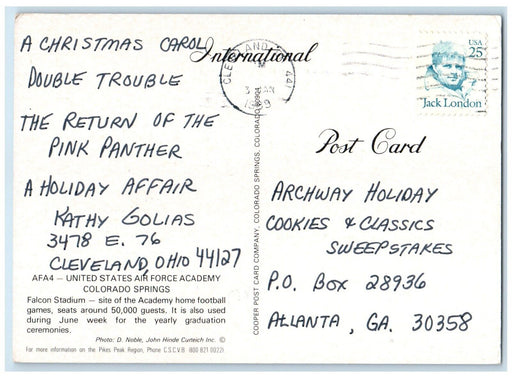 A CHRISTMAS CAROL
DOUBLE TROUBLE
THE RETURN OF THE
PINK PANTHER
A HOLIDAY AFFAIR
KATHY GOLIAS
3478 E. 76
CLEVELAND, OHIO 44127
AFA4 — UNITED STATES AIR FORCE ACADEMY
COLORADO SPRINGS
Falcon Stadium — site of the Academy home football
games, seats around 50,000 guests. It is also used
during June week for the yearly graduation
ceremonies.
Photo: D. Noble, John Hinde Curteich Inc. ©
For more information on the Pikes Peak Region, Phone C.S.C.V.B. (800 821 0022)
International
Post Card
COOPER POST CARD COMPANY, COLORADO SPRINGS, COLORADO 80901
CLEVELAND
441
USA
25
Jack London
ARCHWAY HOLIDAY
COOKIES & CLASSICS
SWEEPSTAKES
P.O. BOX 28936
ATLANTA, GA. 30358